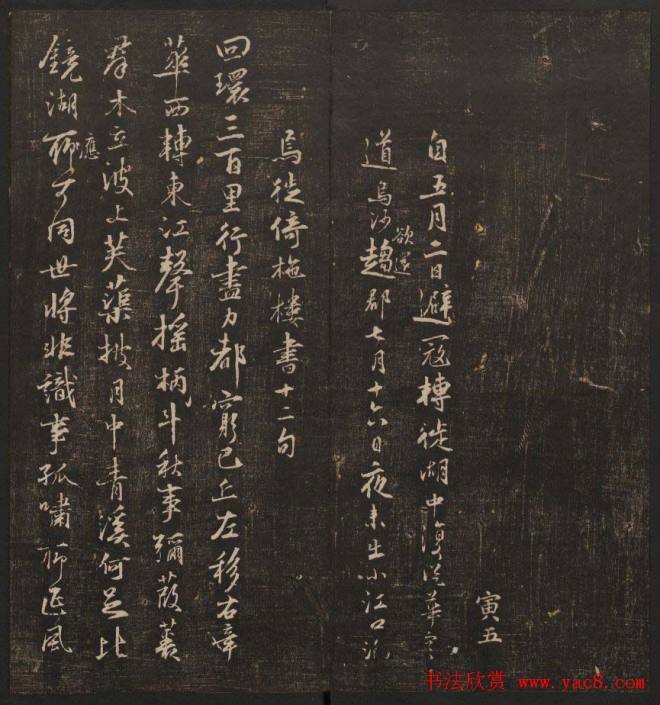 寅五
自五月二日避寇轉徙湖中復從華亭
道烏沙欲還趨郡七月十六日夜未出小江口泝
馬徙倚柂樓書十二句
回環三百里行盡力都窮已上左移右
華西轉東江聲搖柄斗秋事彌葭菼
群木立波上芙蕖披月中青溪何足比
鏡湖聊應可同世將非識事孤嘯聊迎風
书法欣赏 www.yac8.com